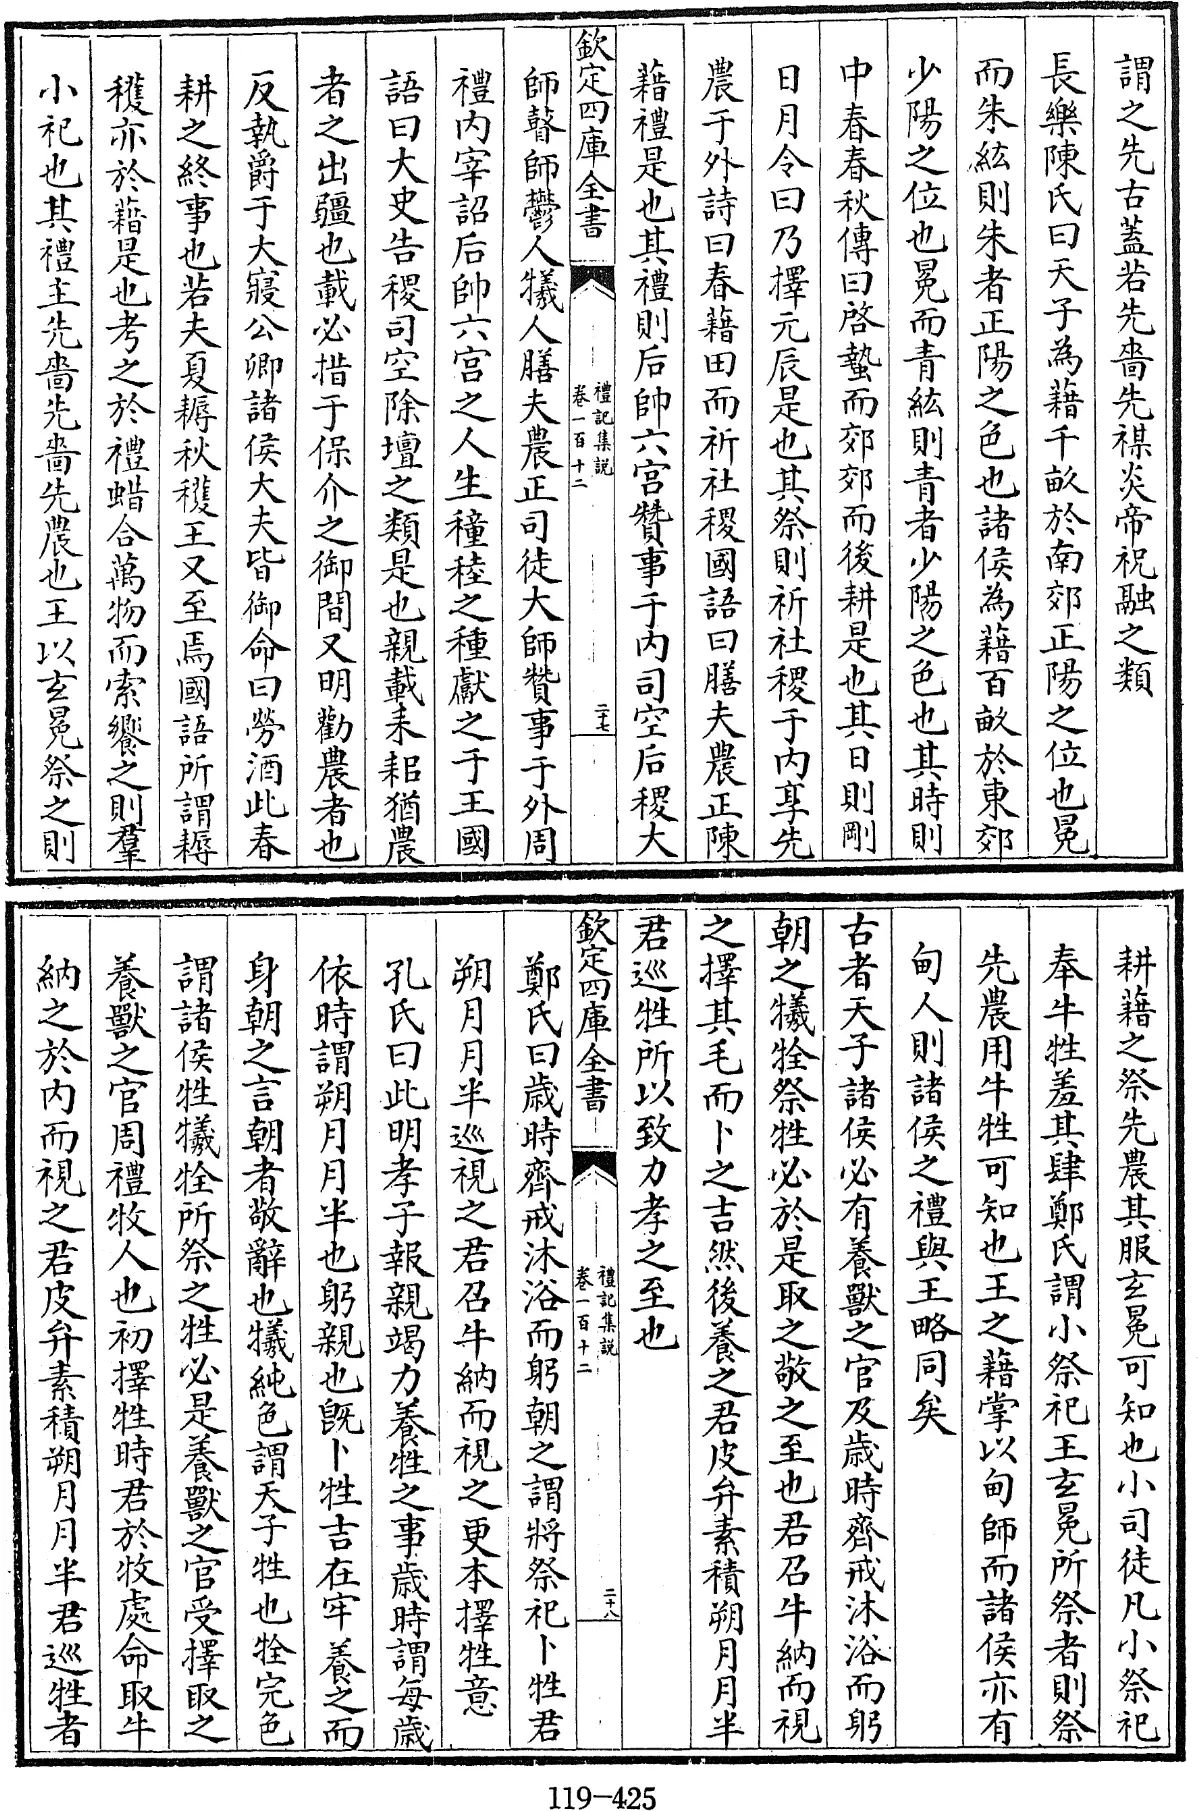 謂之先古蓋若先嗇先禖炎帝祝融之類
長樂陳氏曰天子為藉千畝於南郊正陽之位也冕
而朱紘則朱者正陽之色也諸侯為藉百畝於東郊
少陽之位也冕而青紘則青者少陽之色也其時則
中春春秋傳曰啓蟄而郊郊而後耕是也其日則剛
日月令曰乃擇元辰是也其祭則祈社稷于内享先
農于外詩曰春藉田而祈社稷國語曰膳夫農正陳
藉禮是也其禮則后帥六宮贊事于内司空后稷大
欽定四庫全書
禮記集説
卷一百十二
二十七
師瞽師鬱人犧人膳夫農正司徒大師贊事于外周
禮内宰詔后帥六宮之人生穜稑之種獻之于王國
語曰大史告稷司空除壇之類是也親載耒耜猶農
者之出疆也載必措于保介之御間又明勸農者也
反執爵于大寢公卿諸侯大夫皆御命曰勞酒此春
耕之終事也若夫夏耨秋穫王又至焉國語所謂耨
穫亦於藉是也考之於禮蜡合萬物而索饗之則羣
小祀也其禮主先嗇先嗇先農也王以玄冕祭之則
耕藉之祭先農其服玄冕可知也小司徒凡小祭祀
奉牛牲羞其肆鄭氏謂小祭祀王玄冕所祭者則祭
先農用牛牲可知也王之藉掌以甸師而諸侯亦有
甸人則諸侯之禮與王略同矣
古者天子諸侯必有養獸之官及歲時齊戒沐浴而躬
朝之犧牷祭牲必於是取之敬之至也君召牛納而視
之擇其毛而卜之吉然後養之君皮弁素積朔月月半
君巡牲所以致力孝之至也
欽定四庫全書
禮記集説
卷一百十二
二十八
鄭氏曰歲時齊戒沐浴而躬朝之謂將祭祀卜牲君
朔月月半巡視之君召牛納而視之更本擇牲意
孔氏曰此明孝子報親竭力養牲之事歲時謂每歲
依時謂朔月月半也躬親也既卜牲吉在牢養之而
身朝之言朝者敬辭也犧純色謂天子牲也牷完色
謂諸侯牲犧牷所祭之牲必是養獸之官受擇取之
養獸之官周禮牧人也初擇牲時君於牧處命取牛
納之於内而視之君皮弁素積朔月月半君巡牲者
119-425